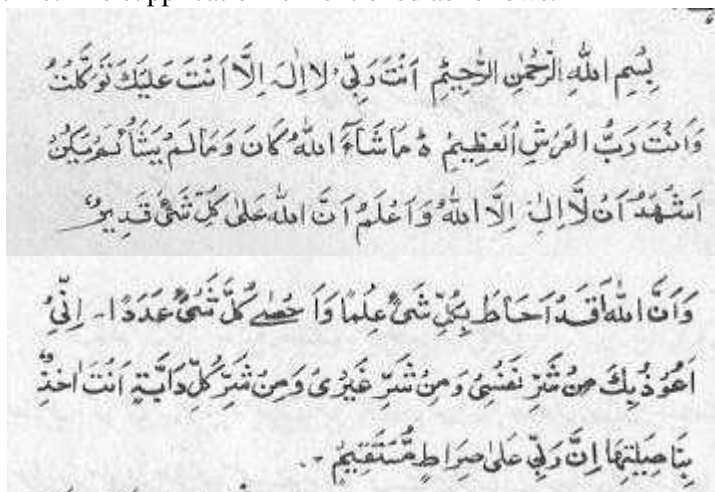 بِسْمِ اللهِ الرَّحْمٰنِ الرَّحِيْمِ اَنْتَ رَبِّيْ لَا اِلٰهَ اِلَّا اَنْتَ عَلَيْكَ تَوَكَّلْتُ
وَاَنْتَ رَبُّ الْعَرْشِ الْعَظِيْمِ ۵ مَا شَآءَ اللهُ كَانَ وَمَا لَمْ يَشَأْ لَمْ يَكُنْ
اَشْهَدُ اَنْ لَّا اِلٰهَ اِلَّا اللهُ وَاَعْلَمُ اَنَّ اللهَ عَلٰى كُلِّ شَيْءٍ قَدِيْرٌ
وَاَنَّ اللهَ قَدْ اَحَاطَ بِكُلِّ شَيْءٍ عِلْمًا وَاَحْصٰے كُلَّ شَيْءٍ عَدَدًا۔ اِنِّيْ
اَعُوْذُ بِكَ مِنْ شَرِّ نَفْسِيْ وَمِنْ شَرِّ غَيْرِيْ وَمِنْ شَرِّ كُلِّ دَابَّةٍ اَنْتَ اٰخِذٌ
بِنَاصِيَتِهَا اِنَّ رَبِّيْ عَلٰى صِرَاطٍ مُّسْتَقِيْمٍ ۔